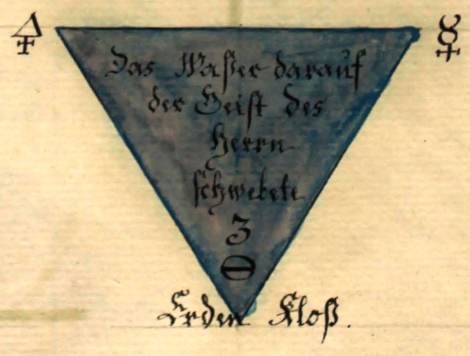 🜍 ☿
Das Waßer darauf
der Geist des
Herrn
schwebete
3
🜔
Erden Kloß.